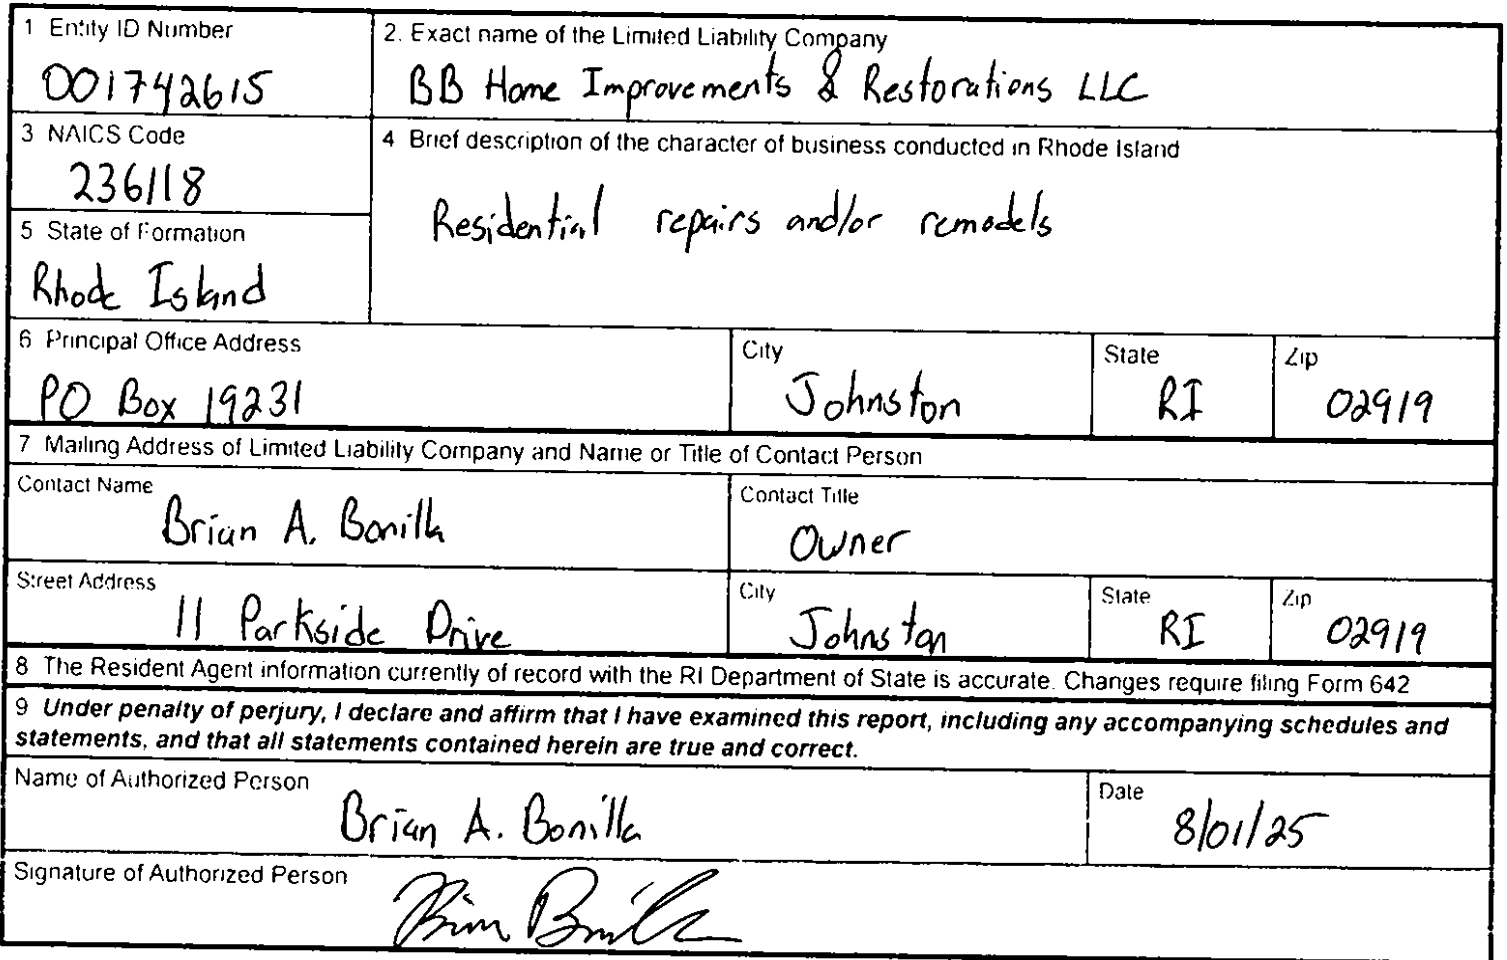 1 Entity ID Number
001742615
2. Exact name of the Limited Liability Company
BB Home Improvements & Restorations LLC
3 NAICS Code
236118
4 Brief description of the character of business conducted in Rhode Island
Residential repairs and/or remodels
5 State of Formation
Rhode Island
6 Principal Office Address
PO Box 19231
City
Johnston
State
RI
Zip
02919
7 Mailing Address of Limited Liability Company and Name or Title of Contact Person
Contact Name
Brian A. Bonilla
Contact Title
Owner
Street Address
11 Parkside Drive
City
Johnston
State
RI
Zip
02919
8 The Resident Agent information currently of record with the RI Department of State is accurate. Changes require filing Form 642
9 Under penalty of perjury, I declare and affirm that I have examined this report, including any accompanying schedules and
statements, and that all statements contained herein are true and correct.
Name of Authorized Person
Brian A. Bonilla
Date
8/01/25
Signature of Authorized Person